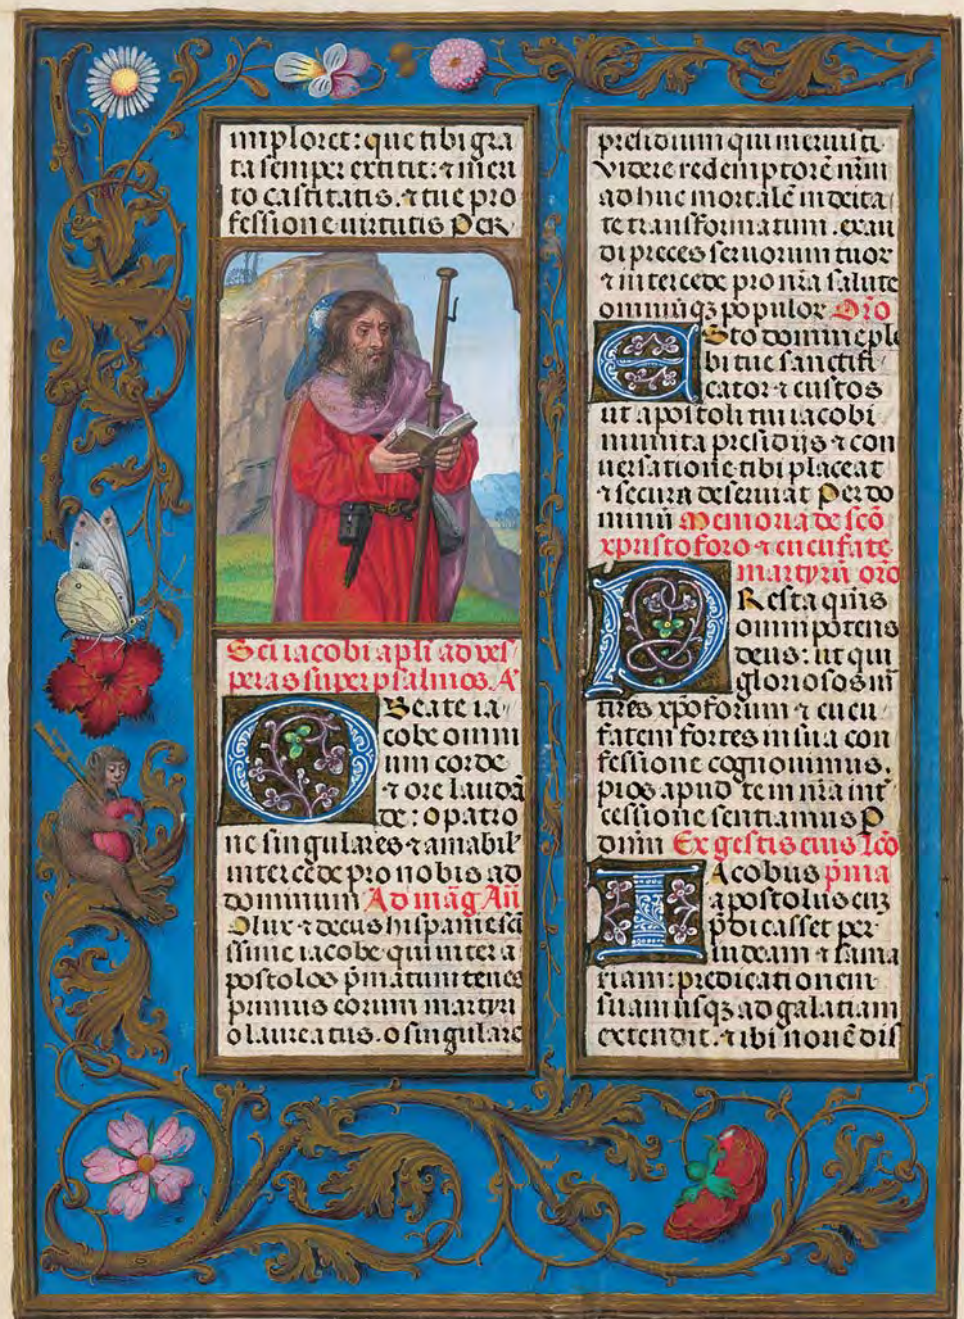 imploret: que tibi gra
ta semper extitit: ⁊ meri
to castitatis. ⁊ tue pro
fessione uirtutis Per
Scī iacobi apłi ad ves-
peras super psalmos. A͞
O Beate ia-
cobe omni
um corde
⁊ ore laudā
de: o patro
ne singulares ⁊ amabil'
intercede pro nobis ad
dominum Ad māg Añ
O lux ⁊ decus hispanie scī
ssime iacobe qui inter a
postolos p̄matum tenes
primus eorum martyri
o laureatus. o singulare
presidium qui meruisti
videre redemptorē nr̄m
ad huc mortalē in deita-
te transformatum. exau
di preces seruorum tuor
⁊ intercede pro nr̄a salute
omniūqꝫ populor Oro
ESto domine ple
bi tue sanctifi
cator ⁊ custos
ut apostoli tui iacobi
munita presidijs ⁊ con
uersatione tibi placeat
⁊ secura deseruiat Per do
minū Memoria de scō
xpristoforo ⁊ cucufate
martyrū oro
PResta quis
omnipotens
deus: ut qui
gloriosos m̄
tires xpoforum ⁊ cucu-
fatem fortes in sua con
fessione cognouimus.
pios apud te in nr̄a int
cessione sentiamus P
dnm Ex gestis eius Lcō
IAcobus p̄ma
apostolus cuꝫ
p̄dicasset per
iudeam ⁊ sama
riam: predicationem
suam usqꝫ ad galatiam
extendit. ⁊ ibi nonē dis